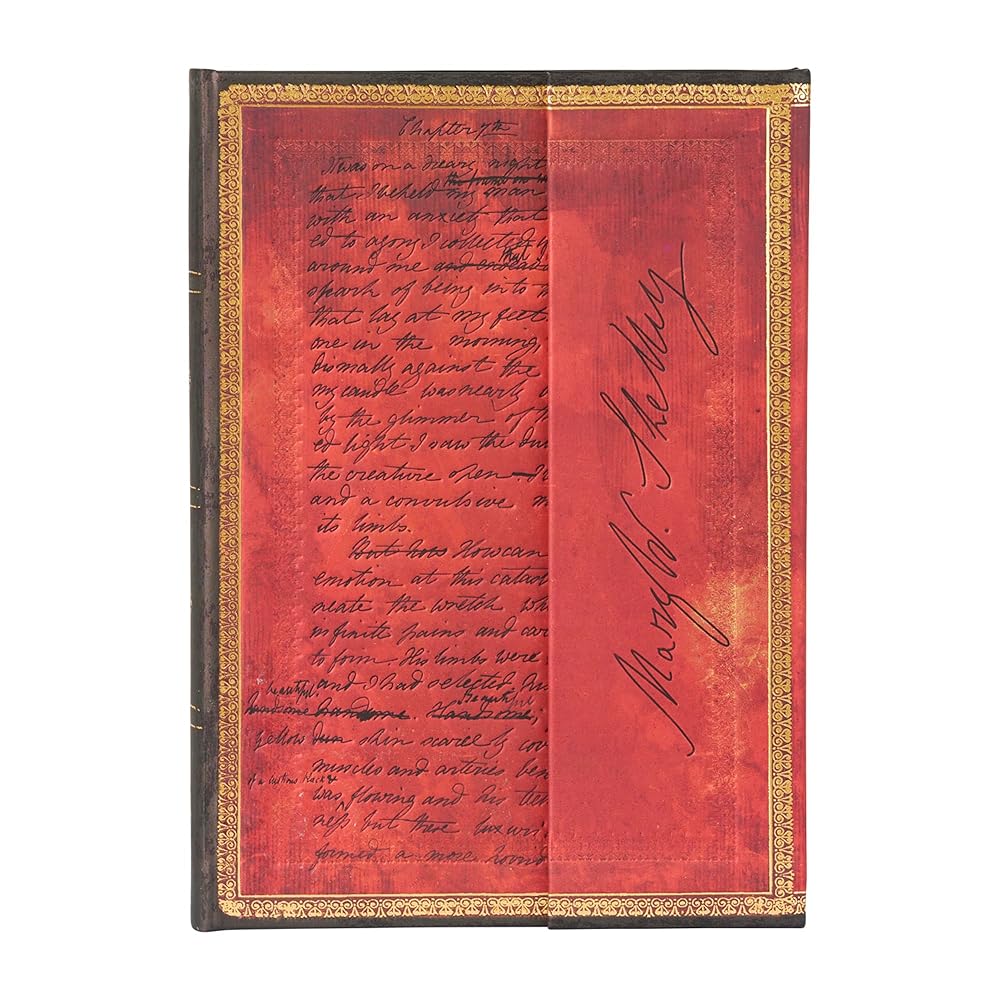 Chapter 7th
It was on a dreary night
the frame on
that I beheld my man
with an anxiety that
ed to agony I collected
around me and endeav
that
spark of being into
that lay at my feet
one in the morning,
dismally against the
my candle was nearly
by the glimmer of
ed light I saw the du
the creature open—I
and a convulsive m
its limbs.
But how How can
emotion at this catas
neate the wretch wh
infinite pains and car
to form. His limbs were
and I had selected his
beautiful. Beautiful
handsome handsome. Handsome;
yellow dun skin scarcely cov
muscles and arteries ben
of a lustrous black &
was flowing and his tee
ness but these luxuri
formed a more horrid
Mary W. Shelley